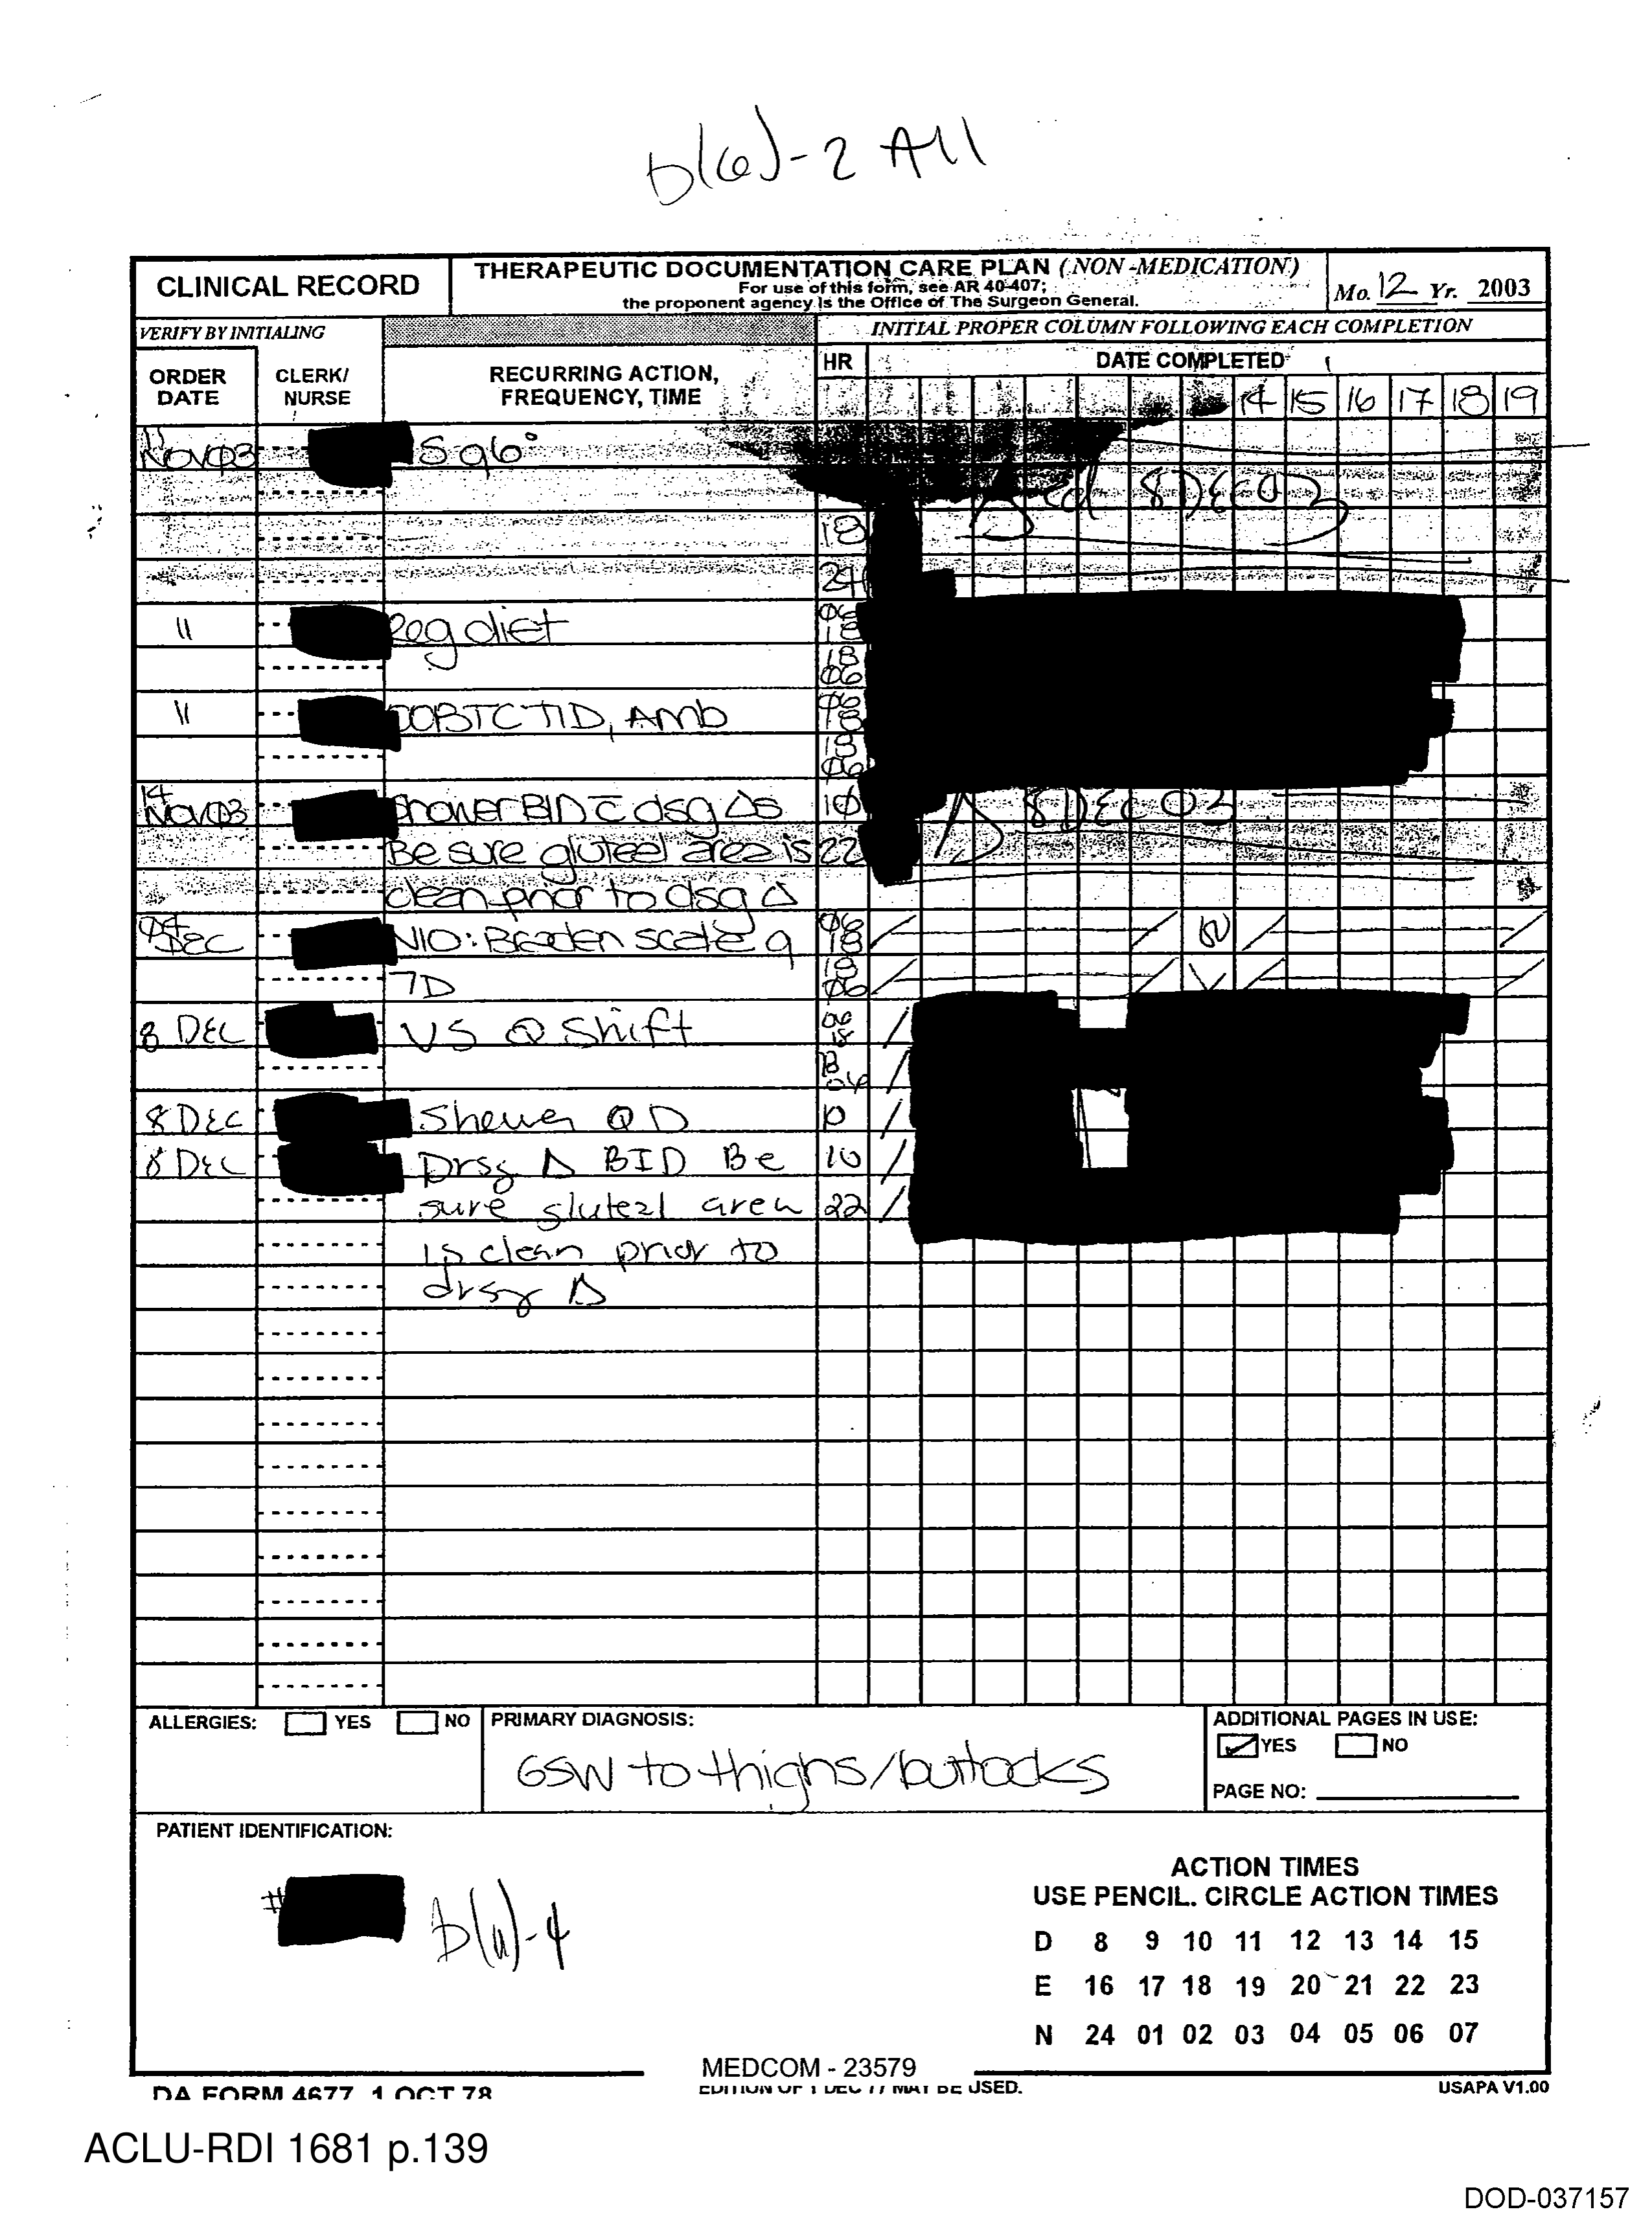 b(6)-2 All
CLINICAL RECORD
THERAPEUTIC DOCUMENTATION CARE PLAN (NON-MEDICATION)
For use of this form, see AR 40-407;
the proponent agency is the Office of The Surgeon General.
Mo. 12 Yr. 2003
VERIFY BY INITIALING
INITIAL PROPER COLUMN FOLLOWING EACH COMPLETION
ORDER DATE
CLERK/ NURSE
RECURRING ACTION, FREQUENCY, TIME
HR
DATE COMPLETED
14 15 16 17 18 19
11 NOV03 S q6°
ed 8 DEC 03
18
24
" Reg diet 06 18
18 06
" OOBTC TID, Amb 06 18
18 06
14 NOV03 Shower BID c dsg Δs 10 Δ 8 DEC 03
Be sure gluteal area is 22
clean prior to dsg Δ
04 DEC NIO: Braden scale q 06 18
7D 18 06
8 DEC VS Q Shift 06 18
18 06
8 DEC Shower QD 10
8 DEC Drsg Δ BID Be 10
sure gluteal area 22
is clean prior to
drsg Δ
ALLERGIES: YES NO
PRIMARY DIAGNOSIS:
GSW to thighs/buttocks
ADDITIONAL PAGES IN USE:
YES NO
PAGE NO:
PATIENT IDENTIFICATION:
# b(6)-4
ACTION TIMES
USE PENCIL. CIRCLE ACTION TIMES
D 8 9 10 11 12 13 14 15
E 16 17 18 19 20 21 22 23
N 24 01 02 03 04 05 06 07
MEDCOM - 23579
DA FORM 4677, 1 OCT 78
EDITION OF 1 DEC 77 MAY BE USED.
USAPA V1.00
ACLU-RDI 1681 p.139
DOD-037157